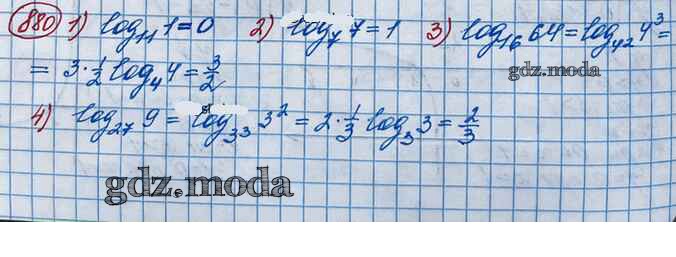 880 1) log₁₁ 1 = 0 2) log₇ 7 = 1 3) log₁₆ 64 = log₄² 4³ =
gdz.moda
= 3 · 1/2 log₄ 4 = 3/2
4) log₂₇ 9 = log₃³ 3² = 2 · 1/3 log₃ 3 = 2/3
gdz.moda